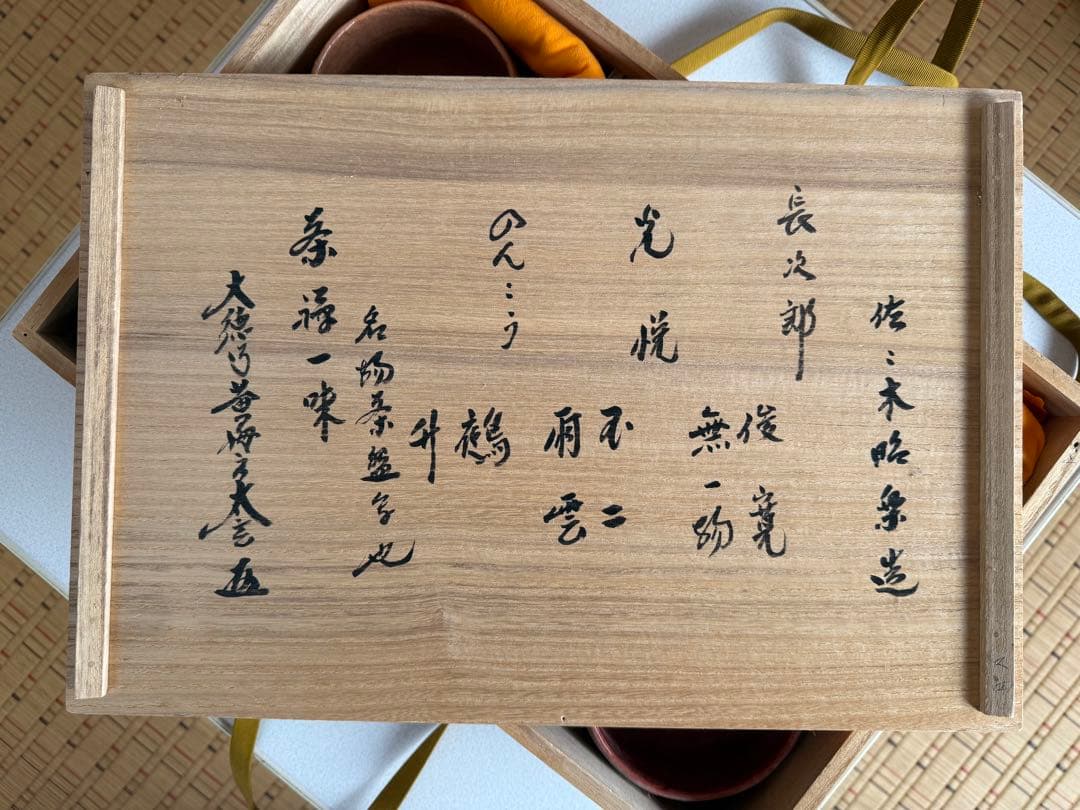 佐ミ木昭楽造
長次郎
俊寛
無一物
光悦
不二
雨雲
のんこう
鵺
升
名物茶盌写也
茶禅一味
大徳寺黄梅方丈太玄